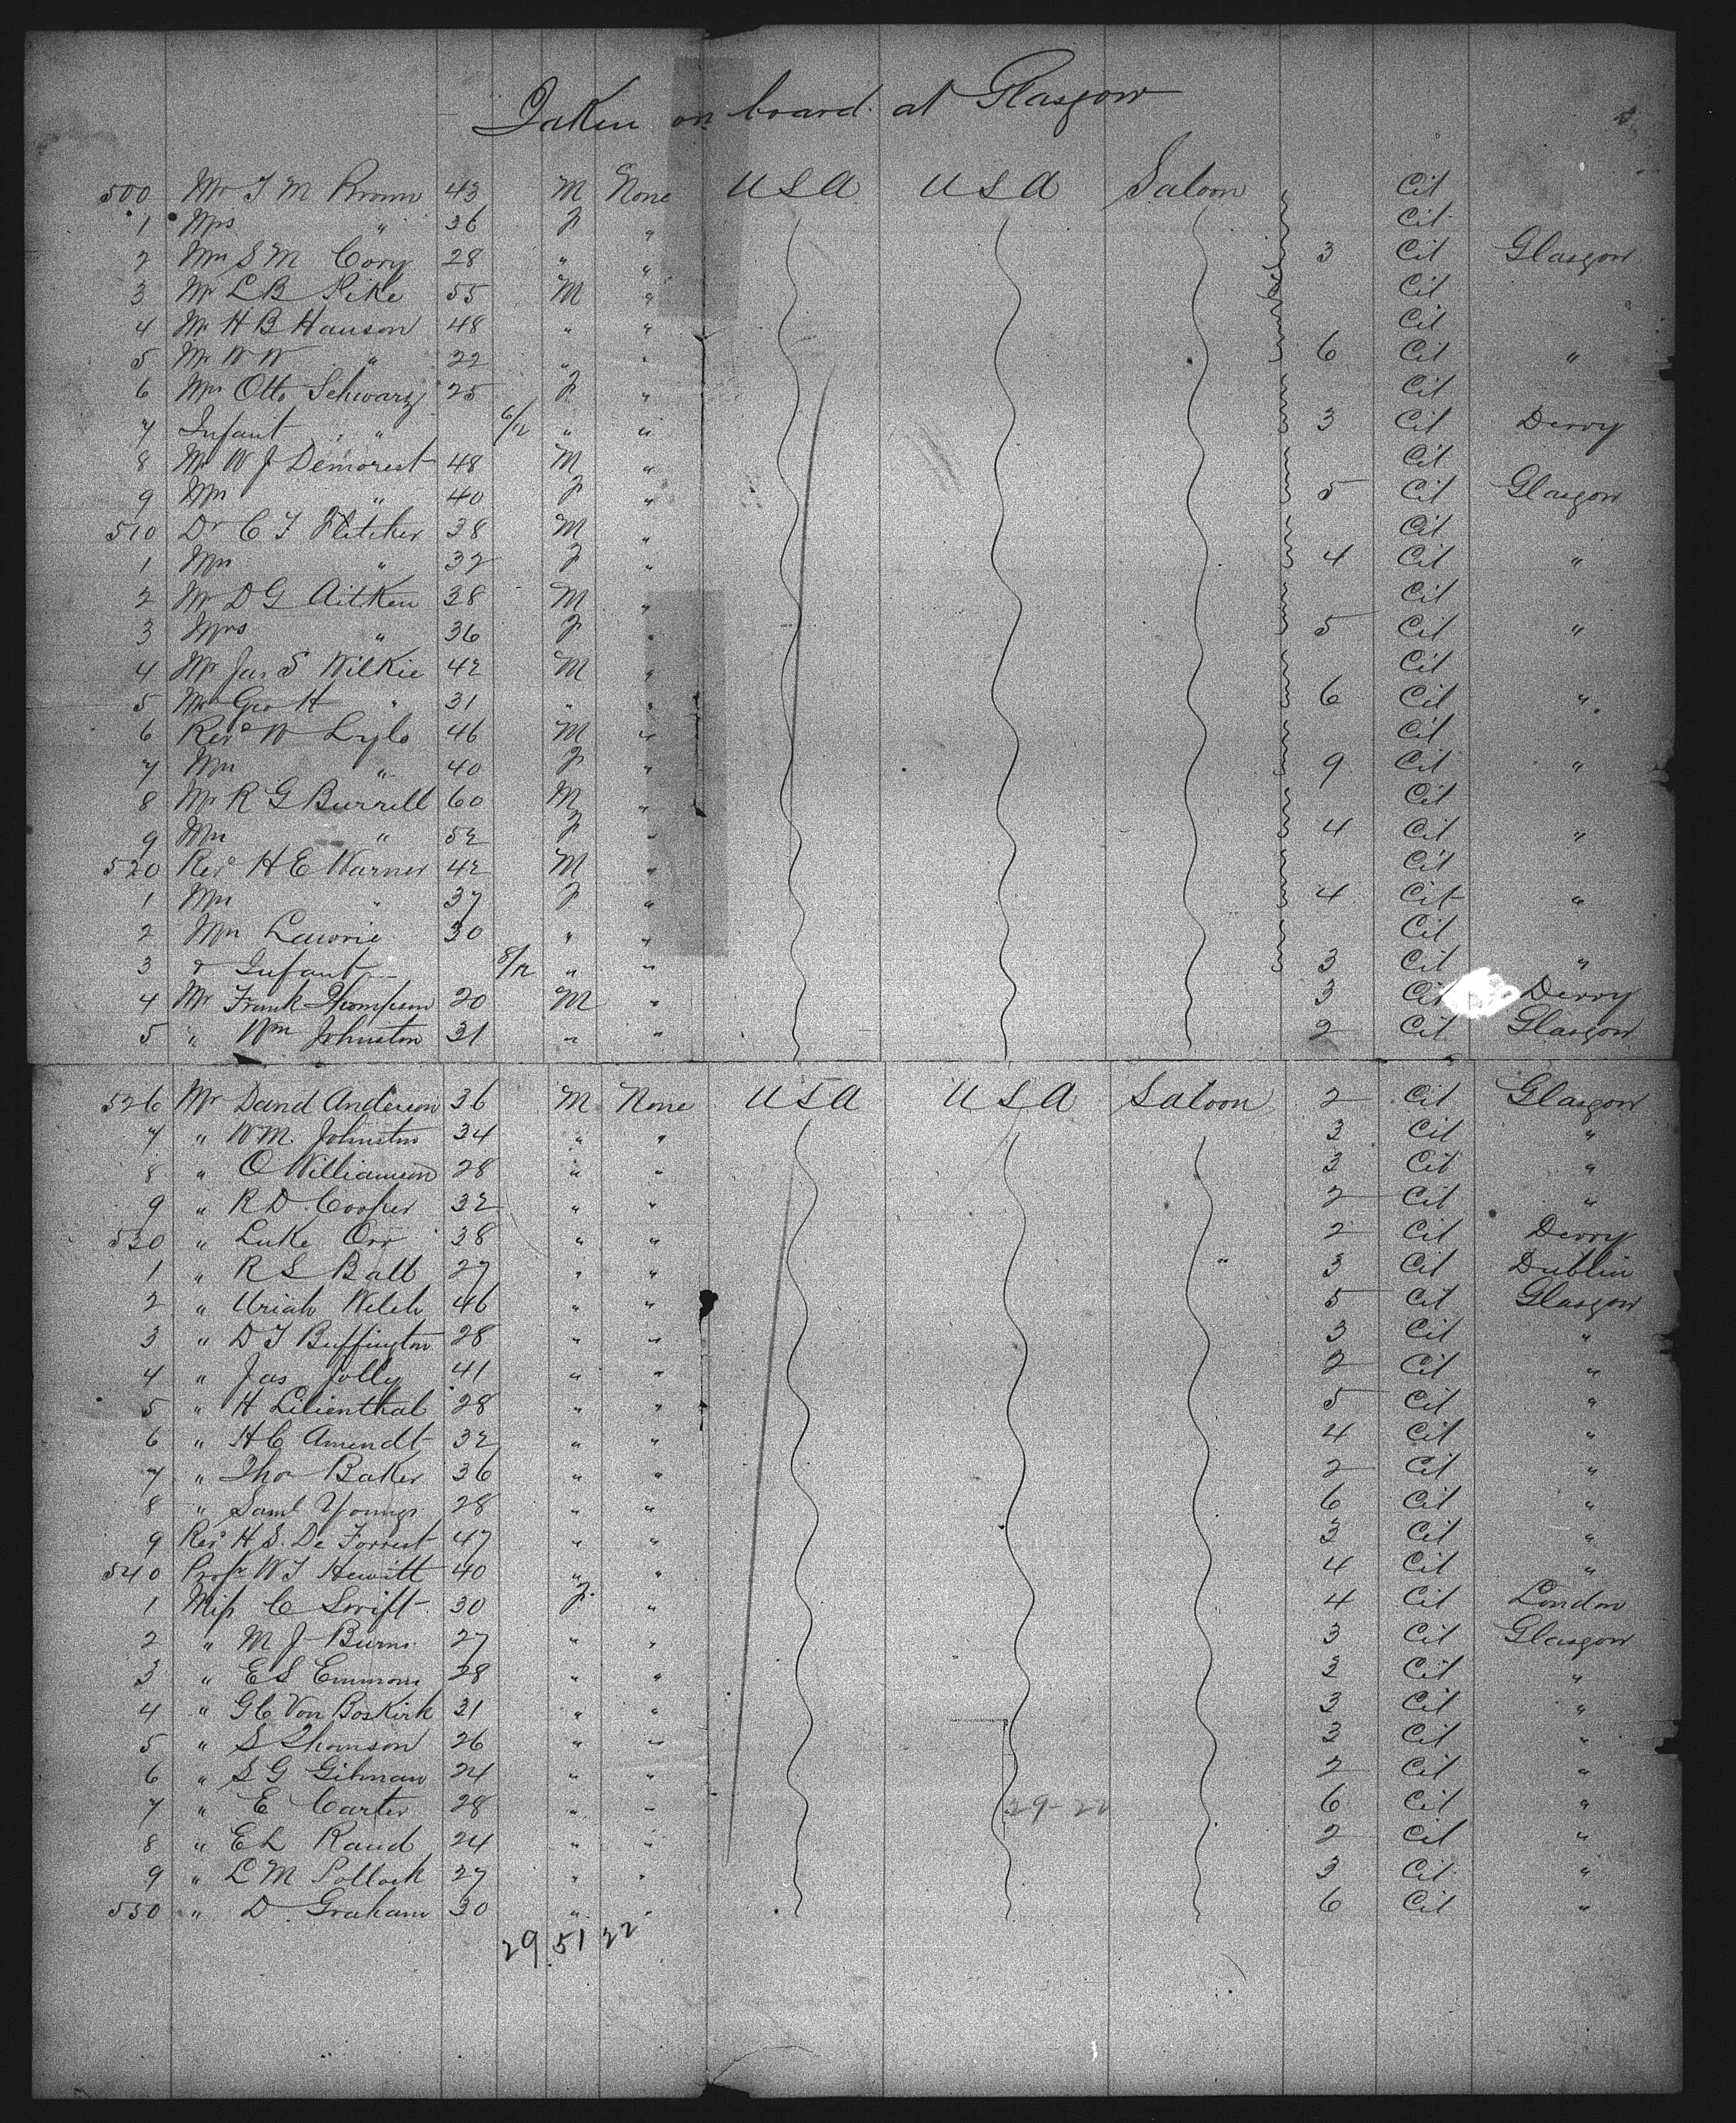 Taken on board at Glasgow
500 Mr T M Brown 43 M None USA USA Saloon Cit
1 Mrs " 36 F " Cit
2 Mrs S M Cory 28 " " 3 Cit Glasgow
3 Mr L B Pike 55 M " Cit
4 Mr H B Hanson 48 " " Cit
5 Mr W W " 22 " " 6 Cit "
6 Mrs Otto Schwarz 25 F " Cit
7 Infant " 6/12 " " 3 Cit Derry
8 Mr W J Demorest 48 M " Cit
9 Mrs " 40 F " 5 Cit Glasgow
510 Dr C T Fletcher 38 M " Cit
1 Mrs " 32 F " 4 Cit "
2 Mr D G Aitken 38 M " Cit
3 Mrs " 36 F " 5 Cit "
4 Mr Jas S Wilkie 42 M " Cit
5 Mr Geo H " 31 " " 6 Cit "
6 Revd W Lyle 46 M " Cit
7 Mrs " 40 F " 9 Cit "
8 Mr R G Burrell 60 M " Cit
9 Mrs " 52 F " 4 Cit "
520 Revd H E Warner 42 M " Cit
1 Mrs " 37 F " 4 Cit "
2 Mrs Lawrie 30 " " Cit
3 & Infant 8/12 " " 3 Cit "
4 Mr Frank Thompson 20 M " 3 Cit Derry
5 " Wm Johnston 31 " " 2 Cit Glasgow
526 Mr David Anderson 36 M None USA USA Saloon 2 Cit Glasgow
7 " W M. Johnston 34 " " 3 Cit "
8 " O Williamson 28 " " 3 Cit "
9 " R D. Cooper 32 " " 2 Cit "
530 " Luke Orr 38 " " 2 Cit Derry
1 " R S Ball 27 " " " 3 Cit Dublin
2 " Uriah Welch 46 " " 5 Cit Glasgow
3 " D T Buffington 28 " " 3 Cit "
4 " Jas Jolly 41 " " 2 Cit "
5 " H Lilienthal 28 " " 5 Cit "
6 " H C Amendt 32 " " 4 Cit "
7 " Thos Baker 36 " " 2 Cit "
8 " Saml Youngs 28 " " 6 Cit "
9 Revd H. S. De Forrest 47 " " 3 Cit "
540 Profr W T Hewitt 40 " " 4 Cit "
1 Miss C Swift 30 F. " 4 Cit London
2 " M J Burns 27 " " 3 Cit Glasgow
3 " E S Emmons 28 " " 3 Cit "
4 " G C Von Boskirk 31 " " 3 Cit "
5 " S Thomson 26 " " 3 Cit "
6 " S G Gilman 24 " " 2 Cit "
7 " E Carter 28 " " 29-22 6 Cit "
8 " E L Rand 24 " " 2 Cit "
9 " L M Pollock 27 " " 3 Cit "
550 " D. Graham 30 " " 6 Cit "
29 51 22